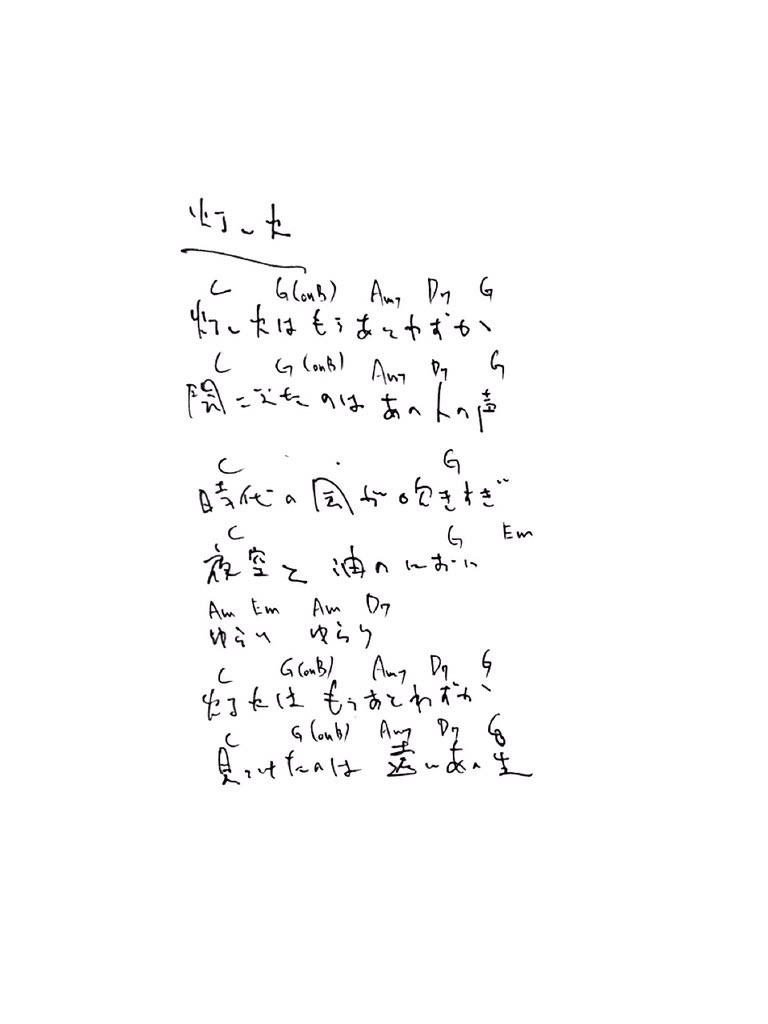 灯った
C G(onB) Am7 D7 G
灯った はもうあとわずか
C G(onB) Am7 D7 G
のは あの人の声
C G
時代の風が吹きすぎ
C G Em
夜空と油のにおいに
Am Em Am D7
ゆらり ゆらり
C G(onB) Am7 D7 G
はもうあとわずか
C G(onB) Am7 D7 G
見つけたのは 遠いあの